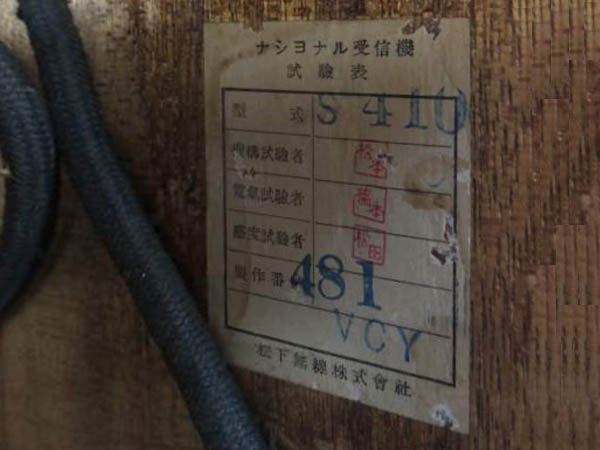 ナショナル受信機
試驗表
型式 S 410
機構試驗者 松本
電氣試驗者 橋本
感度試驗者 松田
製作番 481
VCY
松下無線株式會社